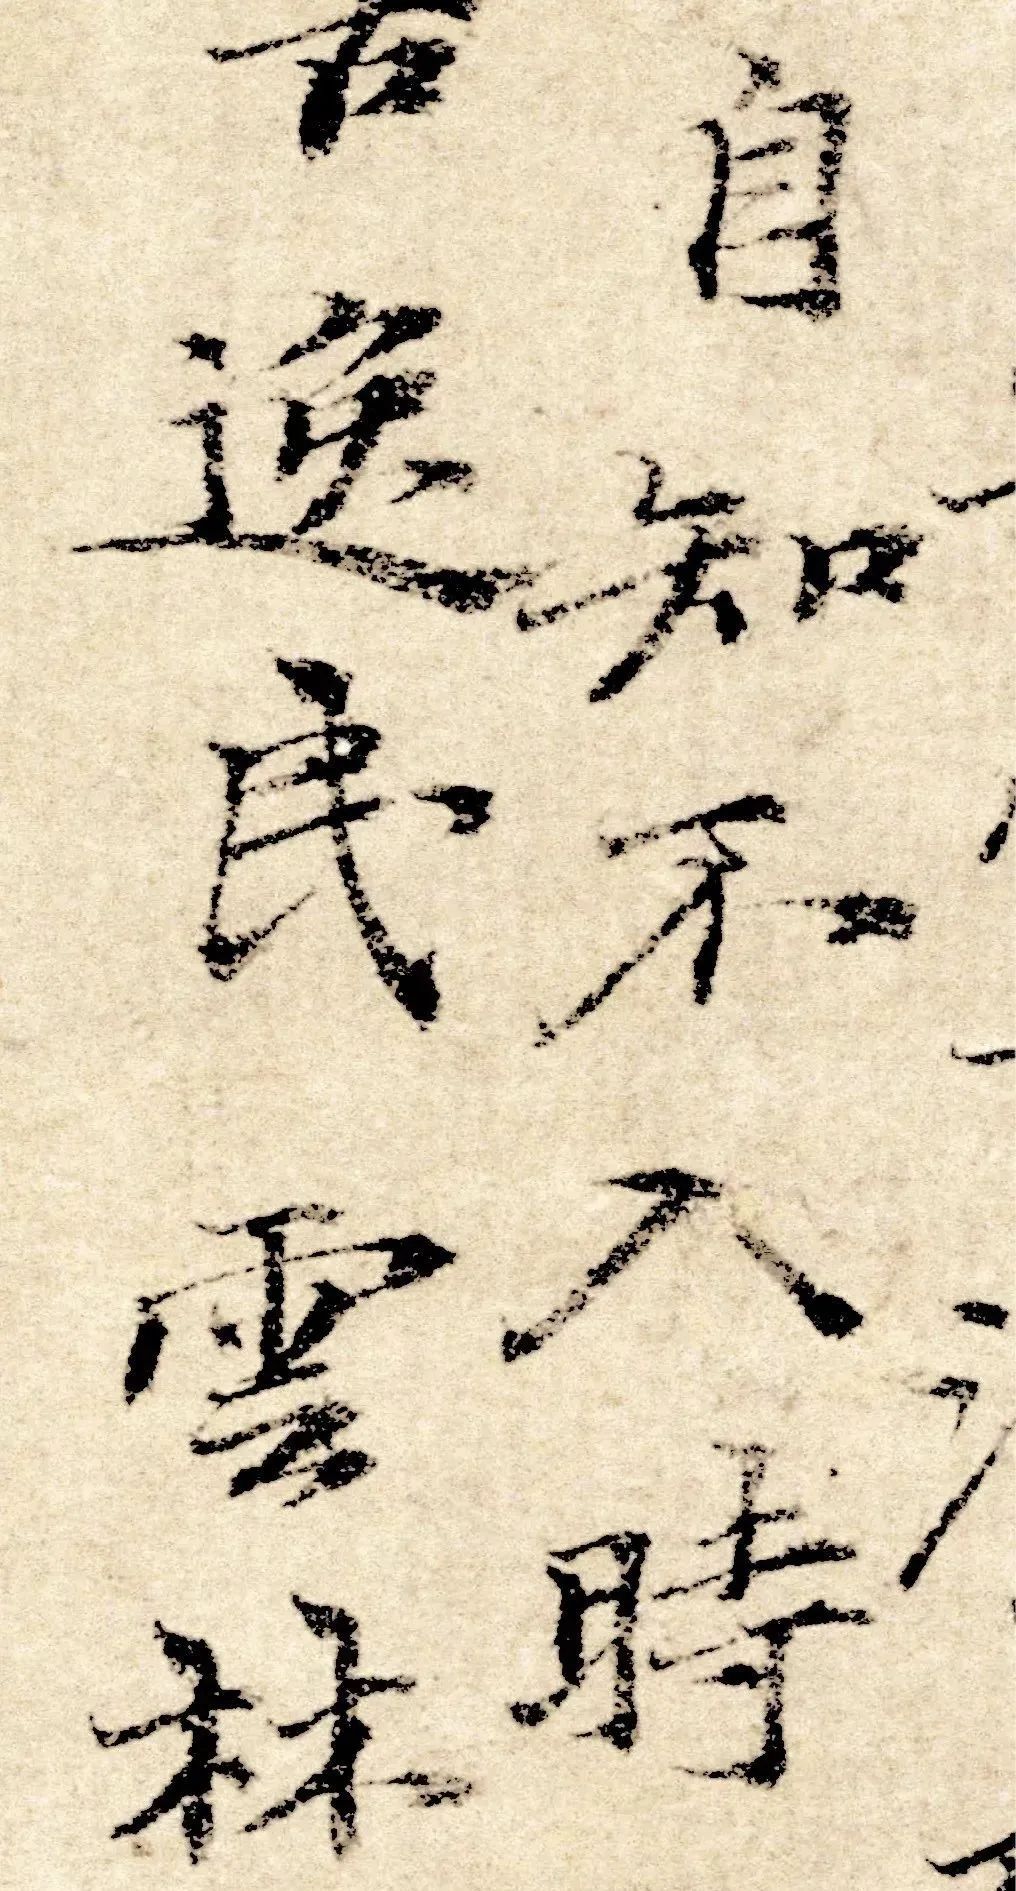 自知不入時
逸民雲林